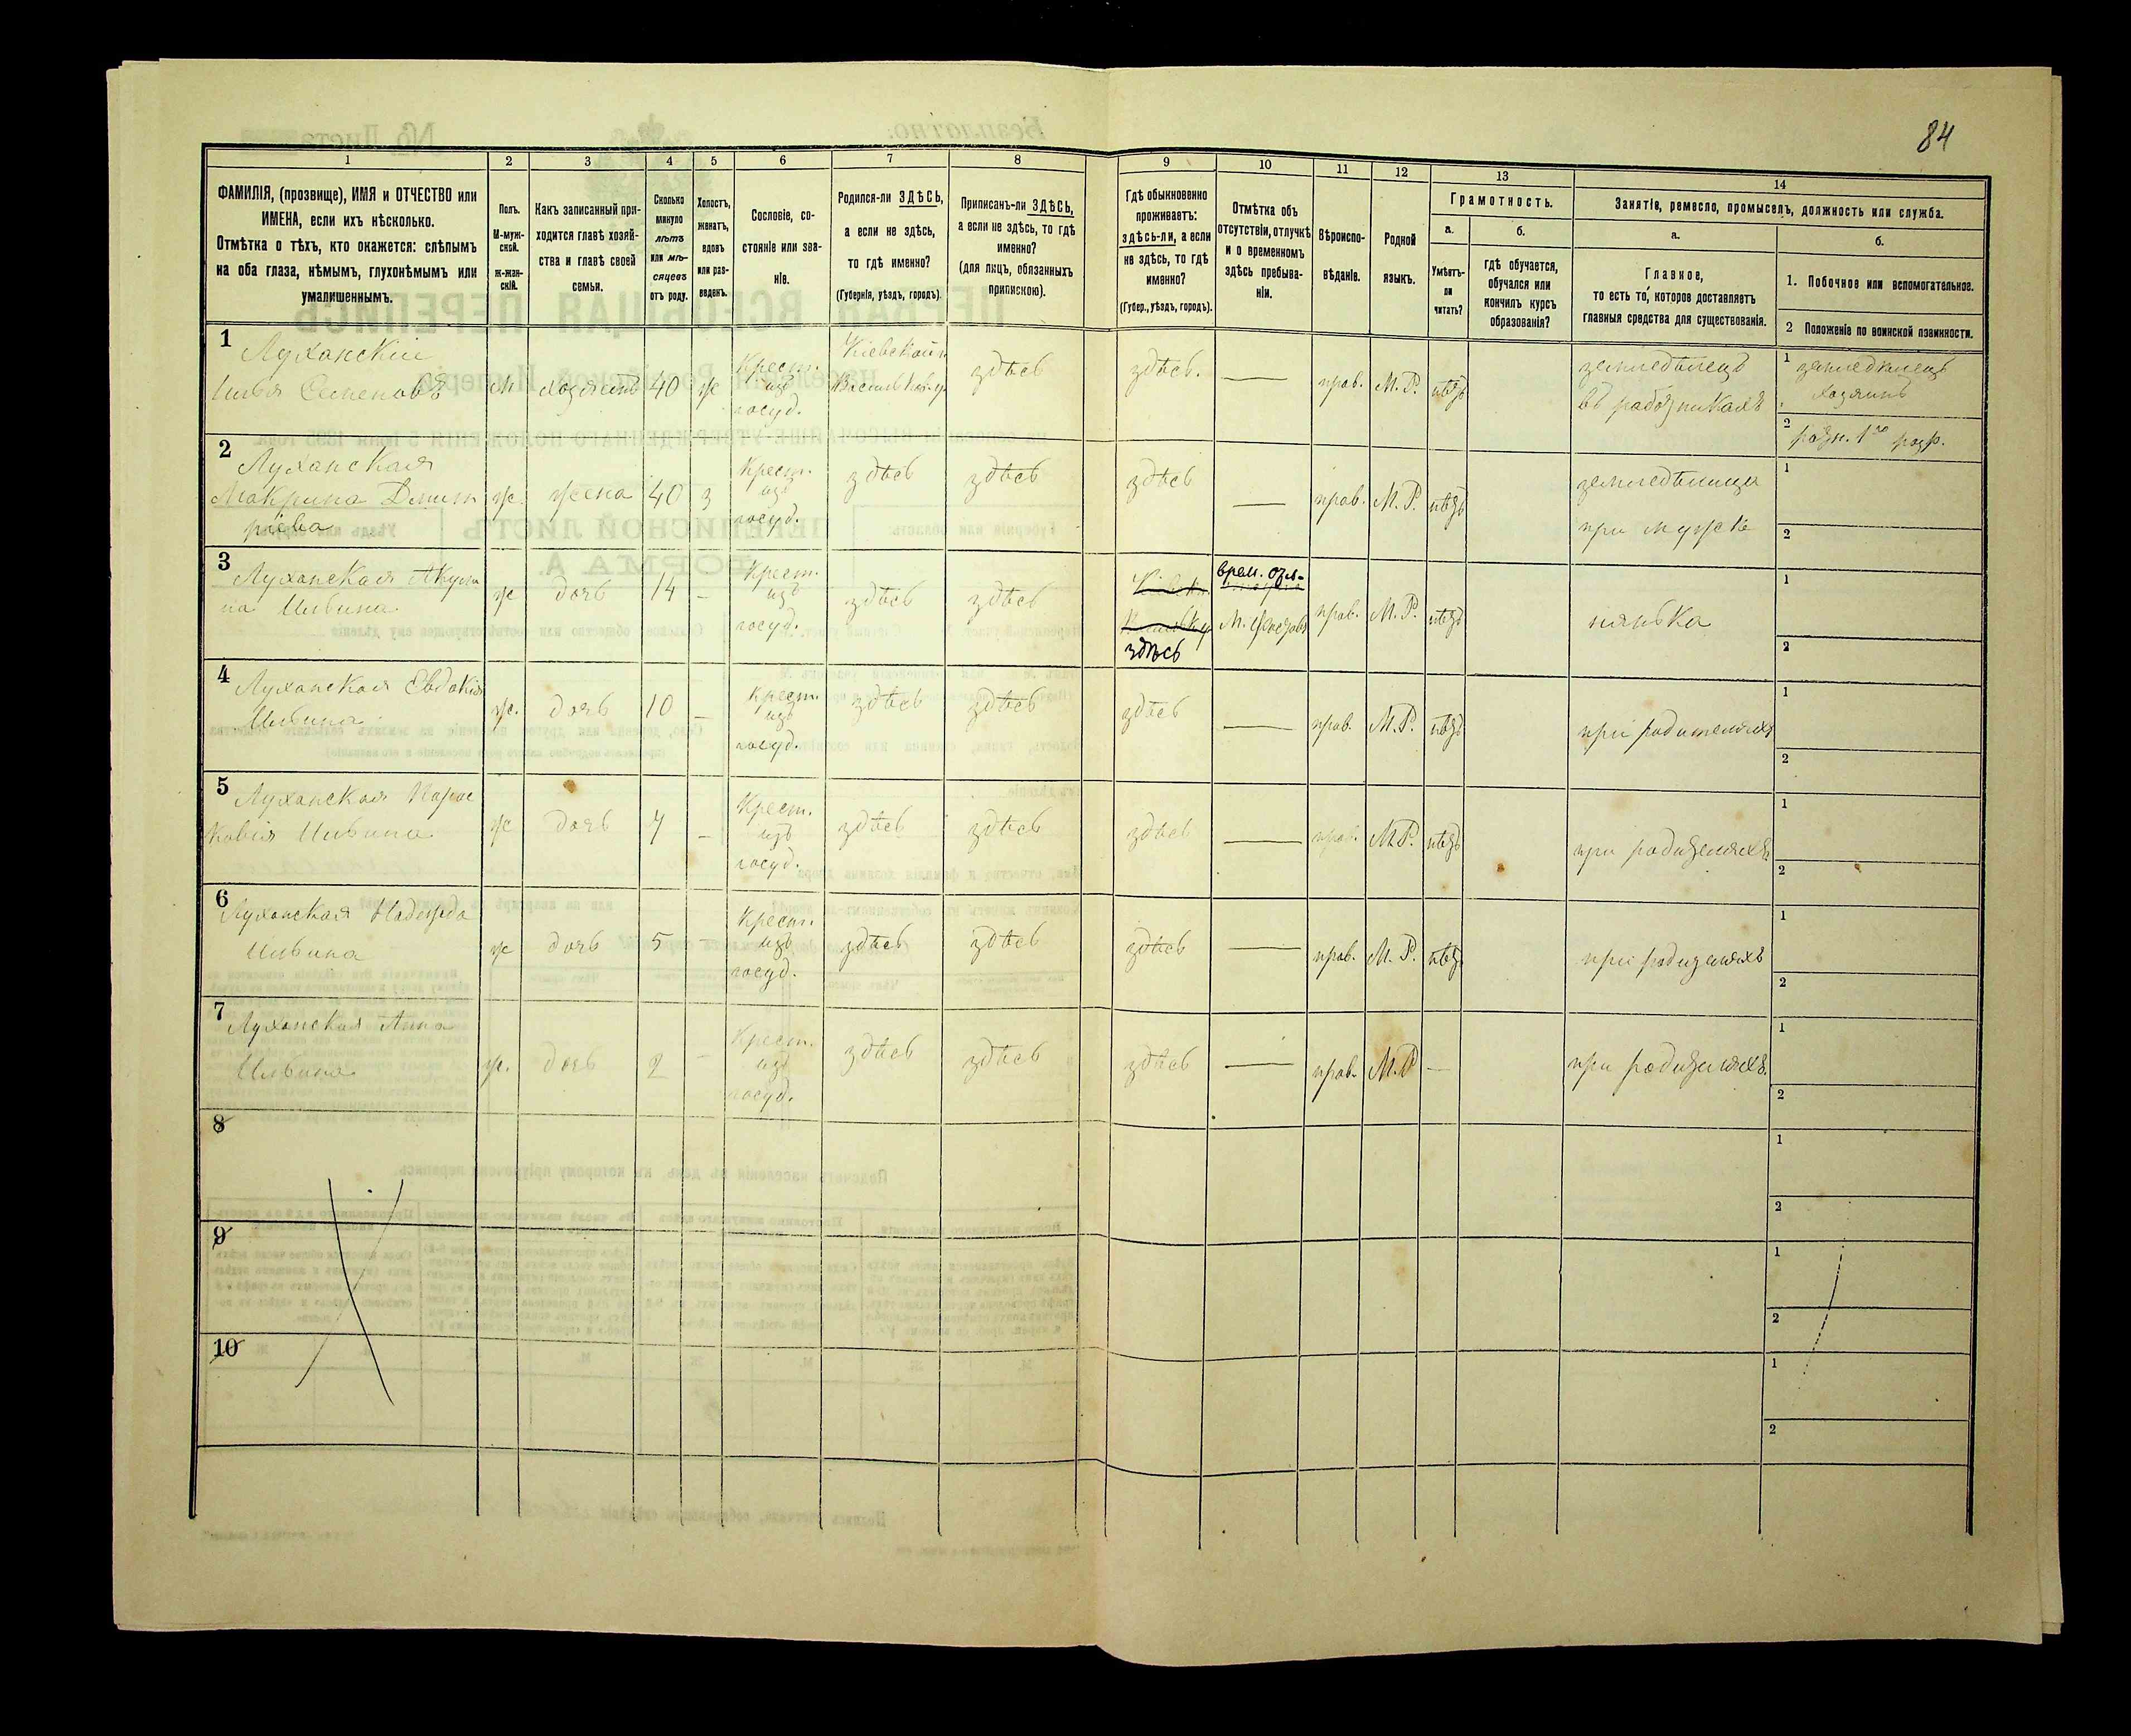 84
1
2
3
4
5
6
7
8
9
10
11
12
13
14
ФАМИЛІЯ, (прозвище), ИМЯ и ОТЧЕСТВО или
ИМЕНА, если ихъ нѣсколько.
Отмѣтка о тѣхъ, кто окажется: слѣпымъ
на оба глаза, нѣмымъ, глухонѣмымъ или
умалишеннымъ.
Полъ.
М-муж-
ской.
ж-жен-
скій.
Какъ записанный при-
ходится главѣ хозяй-
ства и главѣ своей
семьи.
Сколько
минуло
лѣтъ
или мѣ-
сяцевъ
отъ роду.
Холостъ,
женатъ,
вдовъ
или раз-
веденъ.
Сословіе, со-
стояніе или зва-
ніе.
Родился-ли ЗДѢСЬ,
а если не здѣсь,
то гдѣ именно?
(Губернія, уѣздъ, городъ).
Приписанъ-ли ЗДѢСЬ,
а если не здѣсь, то гдѣ
именно?
(для лицъ, обязанныхъ
припискою).
Гдѣ обыкновенно
проживаетъ:
здѣсь-ли, а если
не здѣсь, то гдѣ
именно?
(Губер., уѣздъ, городъ).
Отмѣтка объ
отсутствіи, отлучкѣ
и о временномъ
здѣсь пребыва-
ніи.
Вѣроиспо-
вѣданіе.
Родной
языкъ.
Грамотность.
а.
Умѣетъ-
ли
читать?
б.
гдѣ обучается,
обучался или
кончилъ курсъ
образованія?
Занятіе, ремесло, промыселъ, должность или служба.
а.
Главное,
то есть то, которое доставляетъ
главныя средства для существованія.
б.
1. Побочное или вспомогательное.
2 Положеніе по воинской повинности.
1
Луханскій
Илья Семеновъ
м
хозяинъ
40
ж
Крест.
изъ
госуд.
Кіевской г.
здѣсь
здѣсь.
—
прав.
М. Р.
нѣтъ
земледѣлецъ
въ работникахъ
1 земледѣлецъ
хозяинъ
2 ратн. 1го разр.
2
Луханская
Макрина Дмит
ріева
ж.
жена
40
з
Крест.
изъ
госуд.
здѣсь
здѣсь
здѣсь
—
прав.
М. Р.
нѣтъ
земледѣлица
при мужѣ
1
2
3
Луханская Акули
на Ильина
ж
дочь
14
-
Крест.
изъ
госуд.
здѣсь
здѣсь
здѣсь
врем. отл.
прав.
М. Р.
нѣтъ
нянька
1
2
4
Луханская Евдокія
Ильина
ж.
дочь
10
-
Крест.
изъ
госуд.
здѣсь
здѣсь
здѣсь
—
прав.
М. Р.
нѣтъ
при родителяхъ
1
2
5
Луханская Парас
ковія Ильина
ж
дочь
7
-
Крест.
изъ
госуд.
здѣсь
здѣсь
здѣсь
—
прав.
М. Р.
нѣтъ
при родителяхъ
1
2
6
Луханская Надежда
Ильина
ж
дочь
5
-
Крест.
изъ
госуд.
здѣсь
здѣсь
здѣсь
—
прав.
М. Р.
нѣтъ
при родителяхъ
1
2
7
Луханская Анна
Ильина
ж.
дочь
2
-
Крест.
изъ
госуд.
здѣсь
здѣсь
здѣсь
—
прав.
М. Р
—
при родителяхъ.
1
2
8
1
2
9
1
2
10
1
2